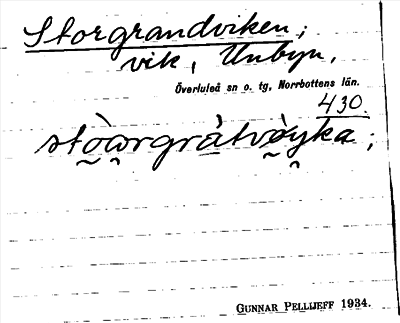 Storgrandviken;
vik, Unbyn,
Överluleå sn o. tg, Norrbottens län.
430.
GUNNAR PELLIJEFF 1934.